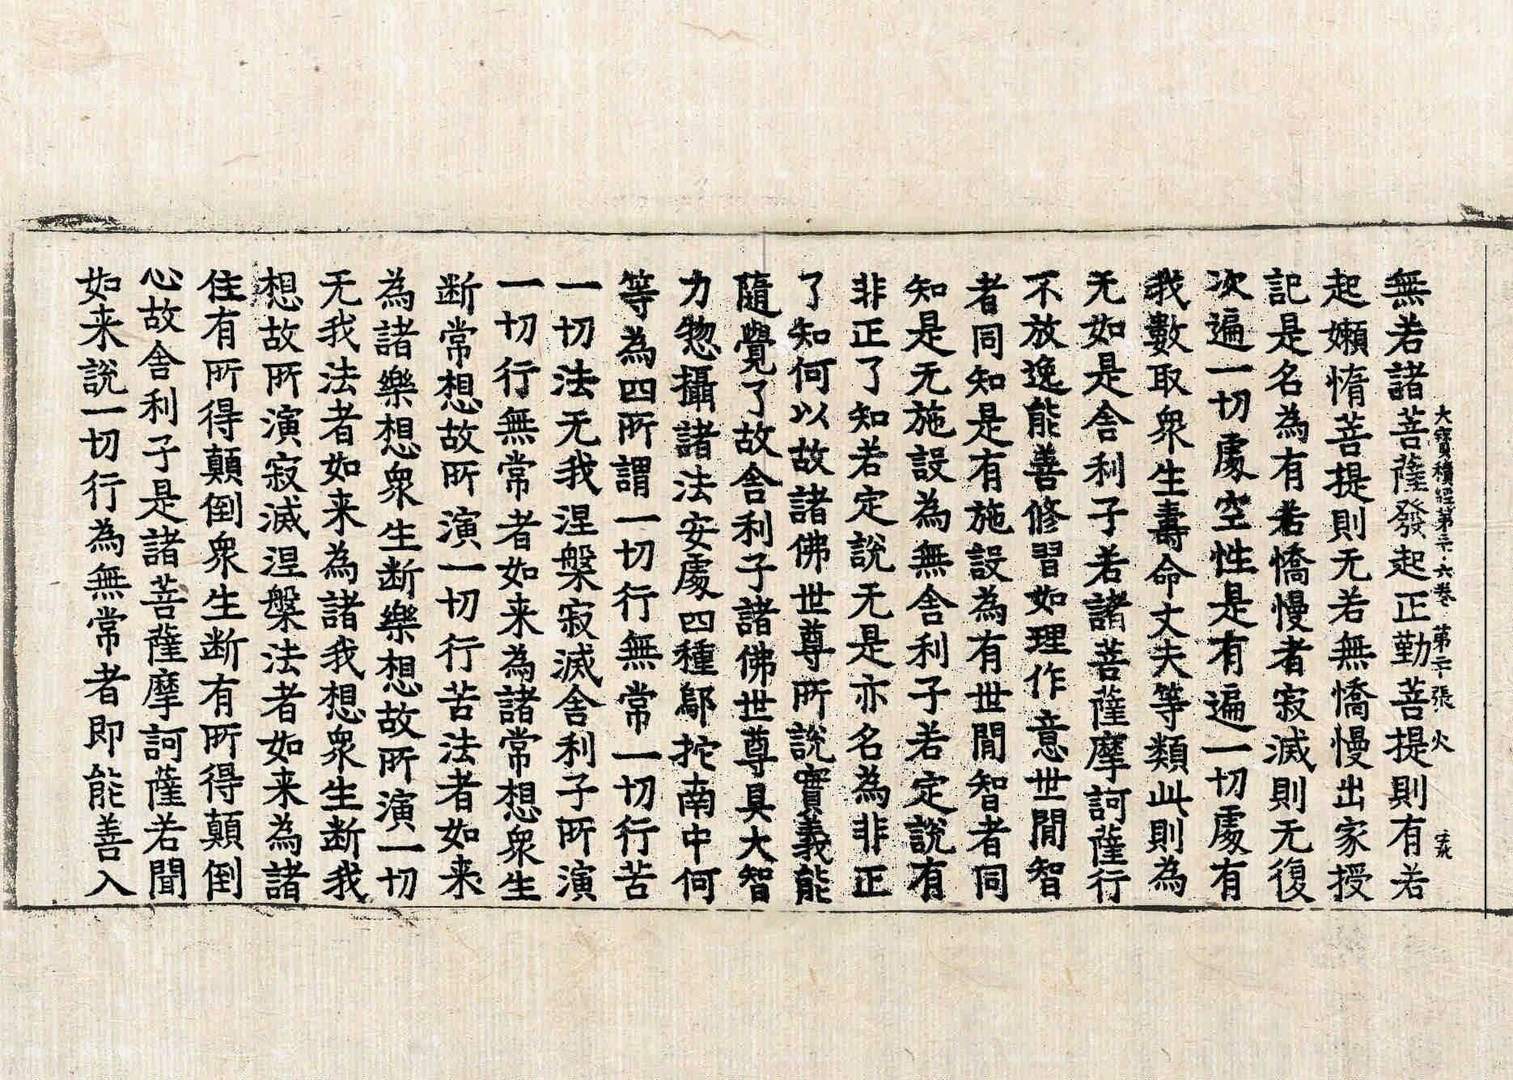 大寶積經第三十六卷 第二十張 火
無若諸菩薩發起正勤菩提則有若
起嬾惰菩提則无若無憍慢出家授
記是名為有若憍慢者寂滅則无復
次遍一切處空性是有遍一切處有
我數取衆生壽命丈夫等類此則為
无如是舍利子若諸菩薩摩訶薩行
不放逸能善修習如理作意世間智
者同知是有施設為有世間智者同
知是无施設為無舍利子若定說有
非正了知若定說无是亦名為非正
了知何以故諸佛世尊所說實義能
隨覺了故舍利子諸佛世尊具大智
力惣攝諸法安處四種鄔拕南中何
等為四所謂一切行無常一切行苦
一切法无我涅槃寂滅舍利子所演
一切行無常者如来為諸常想衆生
断常想故所演一切行苦法者如来
為諸樂想衆生断樂想故所演一切
无我法者如来為諸我想衆生断我
想故所演寂滅涅槃法者如来為諸
住有所得顛倒衆生断有所得顛倒
心故舍利子是諸菩薩摩訶薩若聞
如来說一切行為無常者即能善入